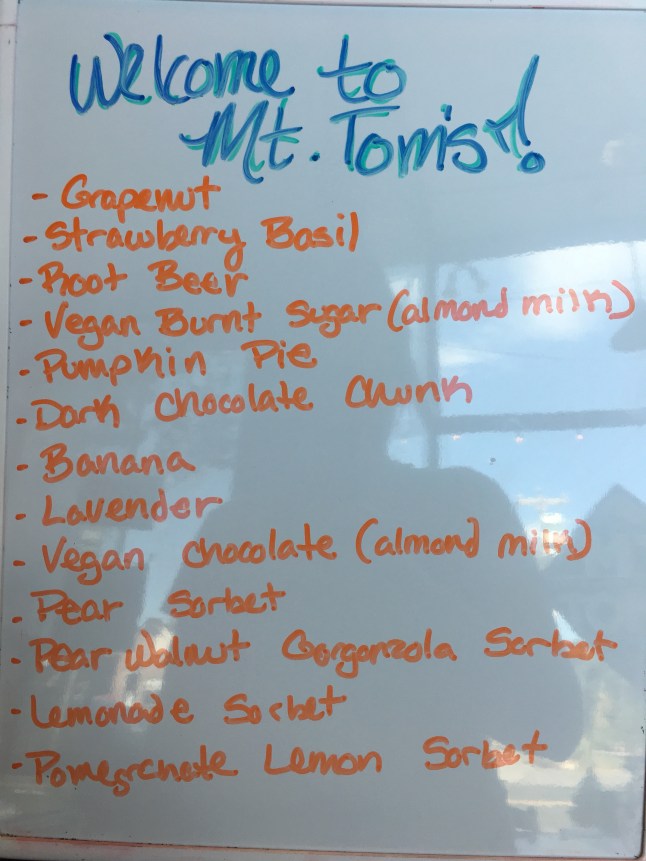 Welcome to
Mt. Tom's!
- Grapenut
- Strawberry Basil
- Root Beer
- Vegan Burnt Sugar (almond milk)
- Pumpkin Pie
- Dark Chocolate Chunk
- Banana
- Lavender
- Vegan Chocolate (almond milk)
- Pear Sorbet
- Pear Walnut Gorgonzola Sorbet
- Lemonade Sorbet
- Pomegranate Lemon Sorbet